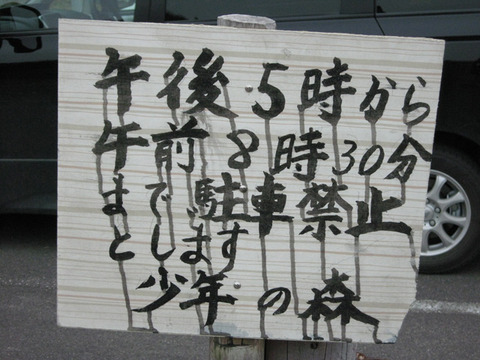 午後5時から
午前8時30分
まで駐車禁止
とします
少年の森